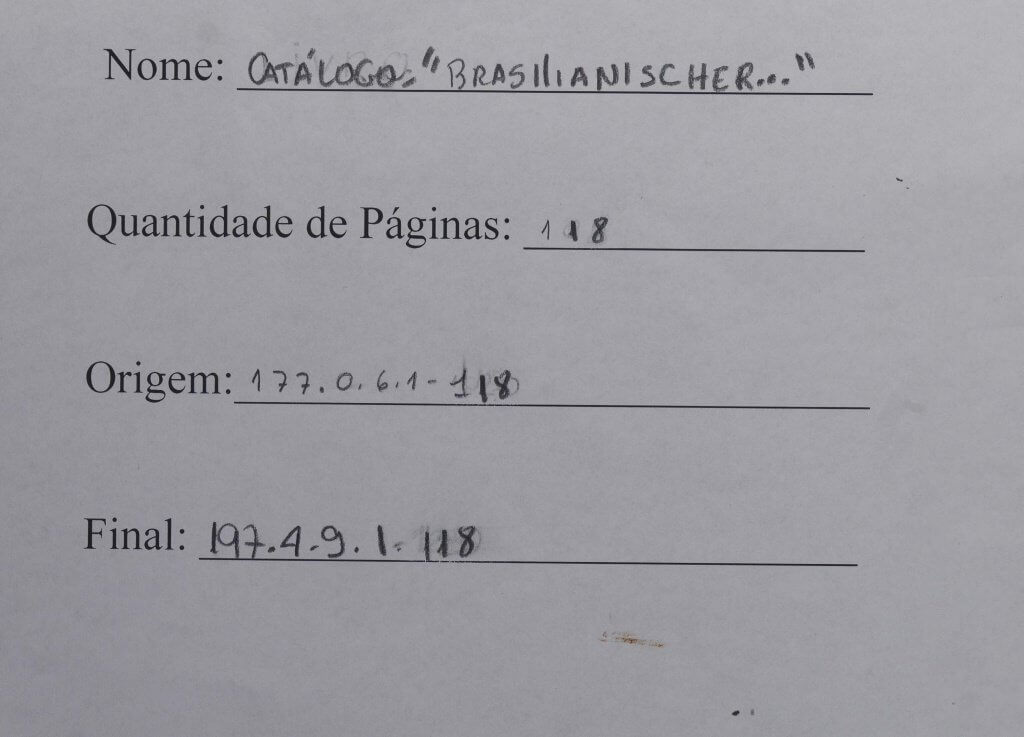 Nome: CATÁLOGO. "BRASILIANISCHER..."
Quantidade de Páginas: 118
Origem: 177.0.6.1-118
Final: 197.4.9.1-118